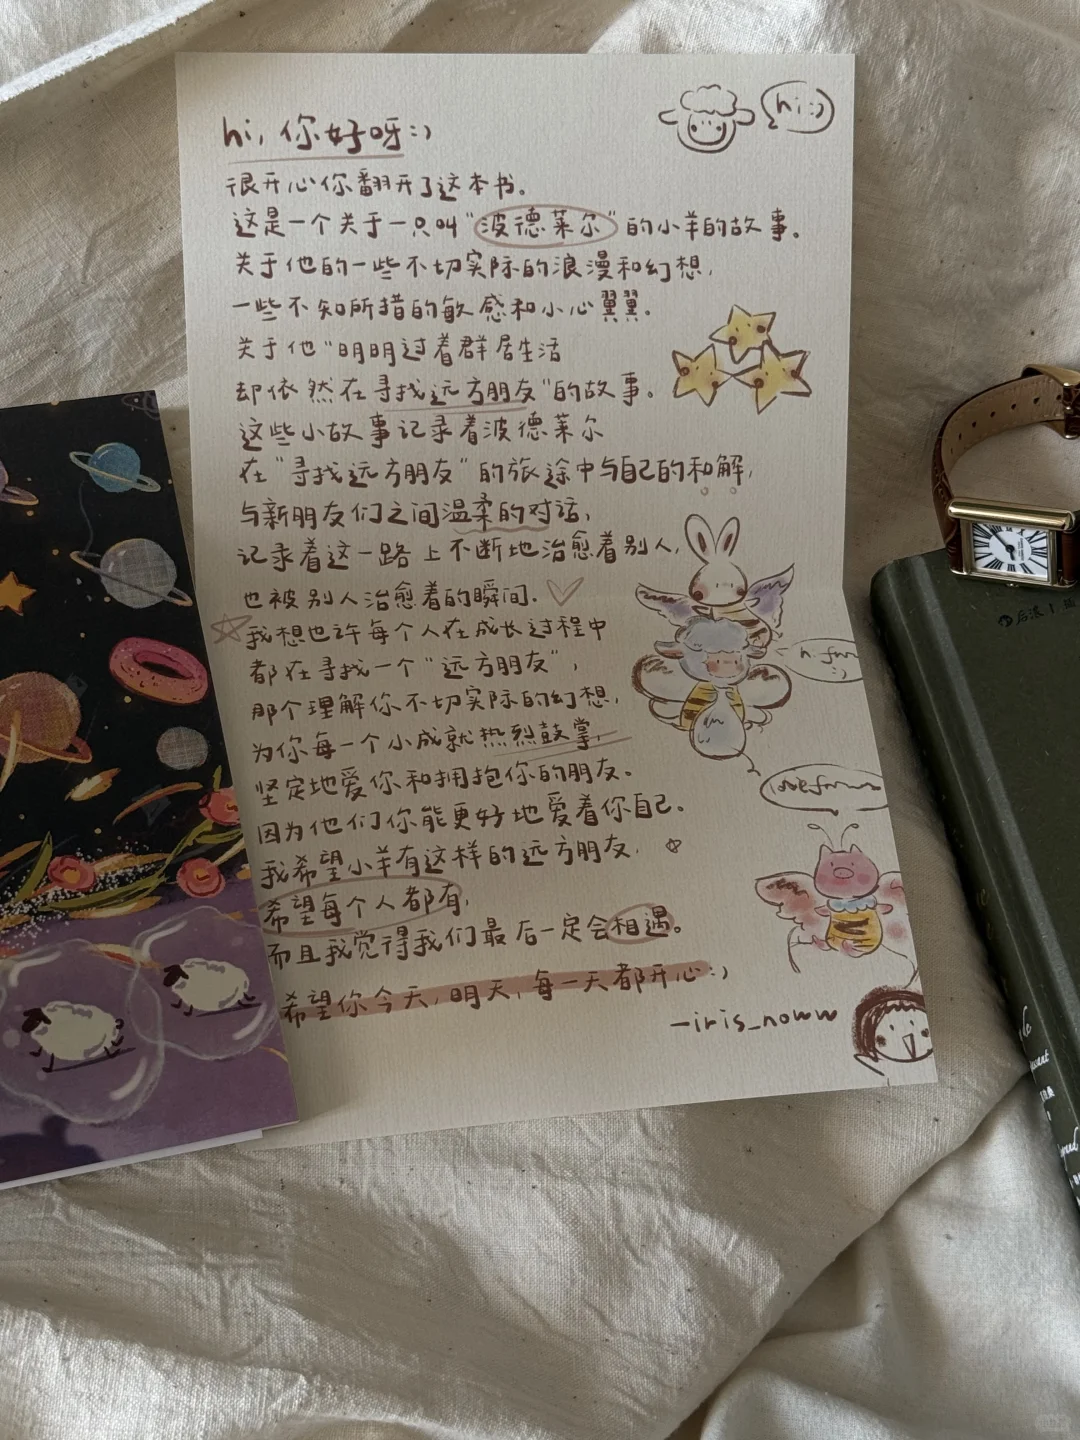 hi, 你好呀:)
hi:)
很开心你翻开了这本书。
这是一个关于一只叫“波德莱尔”的小羊的故事。
关于他的一些不切实际的浪漫和幻想,
一些不知所措的敏感和小心翼翼。
关于他“明明过着群居生活
却依然在寻找远方朋友”的故事。
这些小故事记录着波德莱尔
在“寻找远方朋友”的旅途中与自己的和解,
与新朋友们之间温柔的对话,
记录着这一路上不断地治愈着别人,
也被别人治愈着的瞬间.
我想也许每个人在成长过程中
都在寻找一个“远方朋友”,
那个理解你不切实际的幻想,
为你每一个小成就热烈鼓掌,
坚定地爱你和拥抱你的朋友。
因为他们你能更好地爱着你自己。
我希望小羊有这样的远方朋友,
希望每个人都有,
而且我觉得我们最后一定会相遇。
希望你今天,明天,每一天都开心:)
—iris_noww
后浪